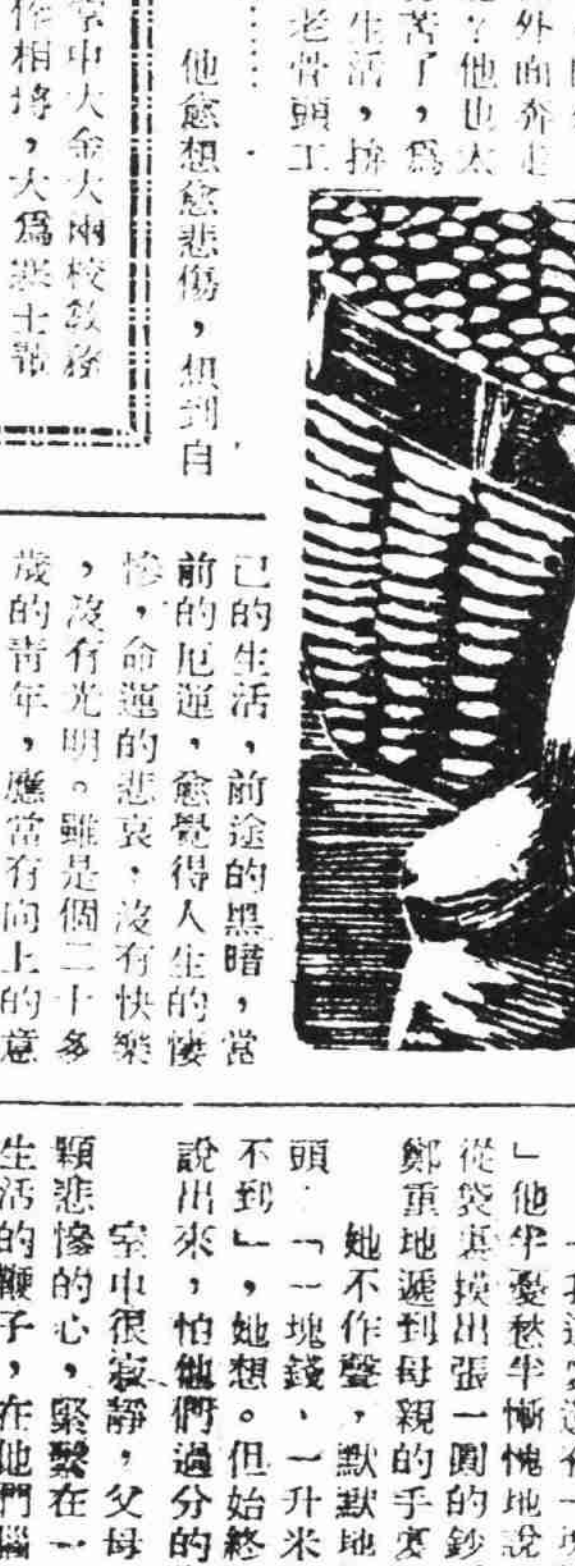 外面奔走
？他也太
苦了，爲
生活，拚
老骨頭工
他愈想愈悲傷，想到自
中大金大兩校教務
相埒，大爲
己的生活，前途的黑暗，當
前的厄運，愈覺得人生的悽
慘，命運的悲哀，沒有快樂
，沒有光明。雖是個二十多
歲的青年，應當有向上的意
」他半憂愁半慚愧地說
從袋裏摸出張一圓的鈔
鄭重地遞到母親的手裏
她不作聲，默默地
頭：「一塊錢、一升米
不到」，她想。但始終
說出來，怕他們過分的
室中很寂靜，父母
顆悲慘的心，緊緊在一
生活的鞭子，在他們